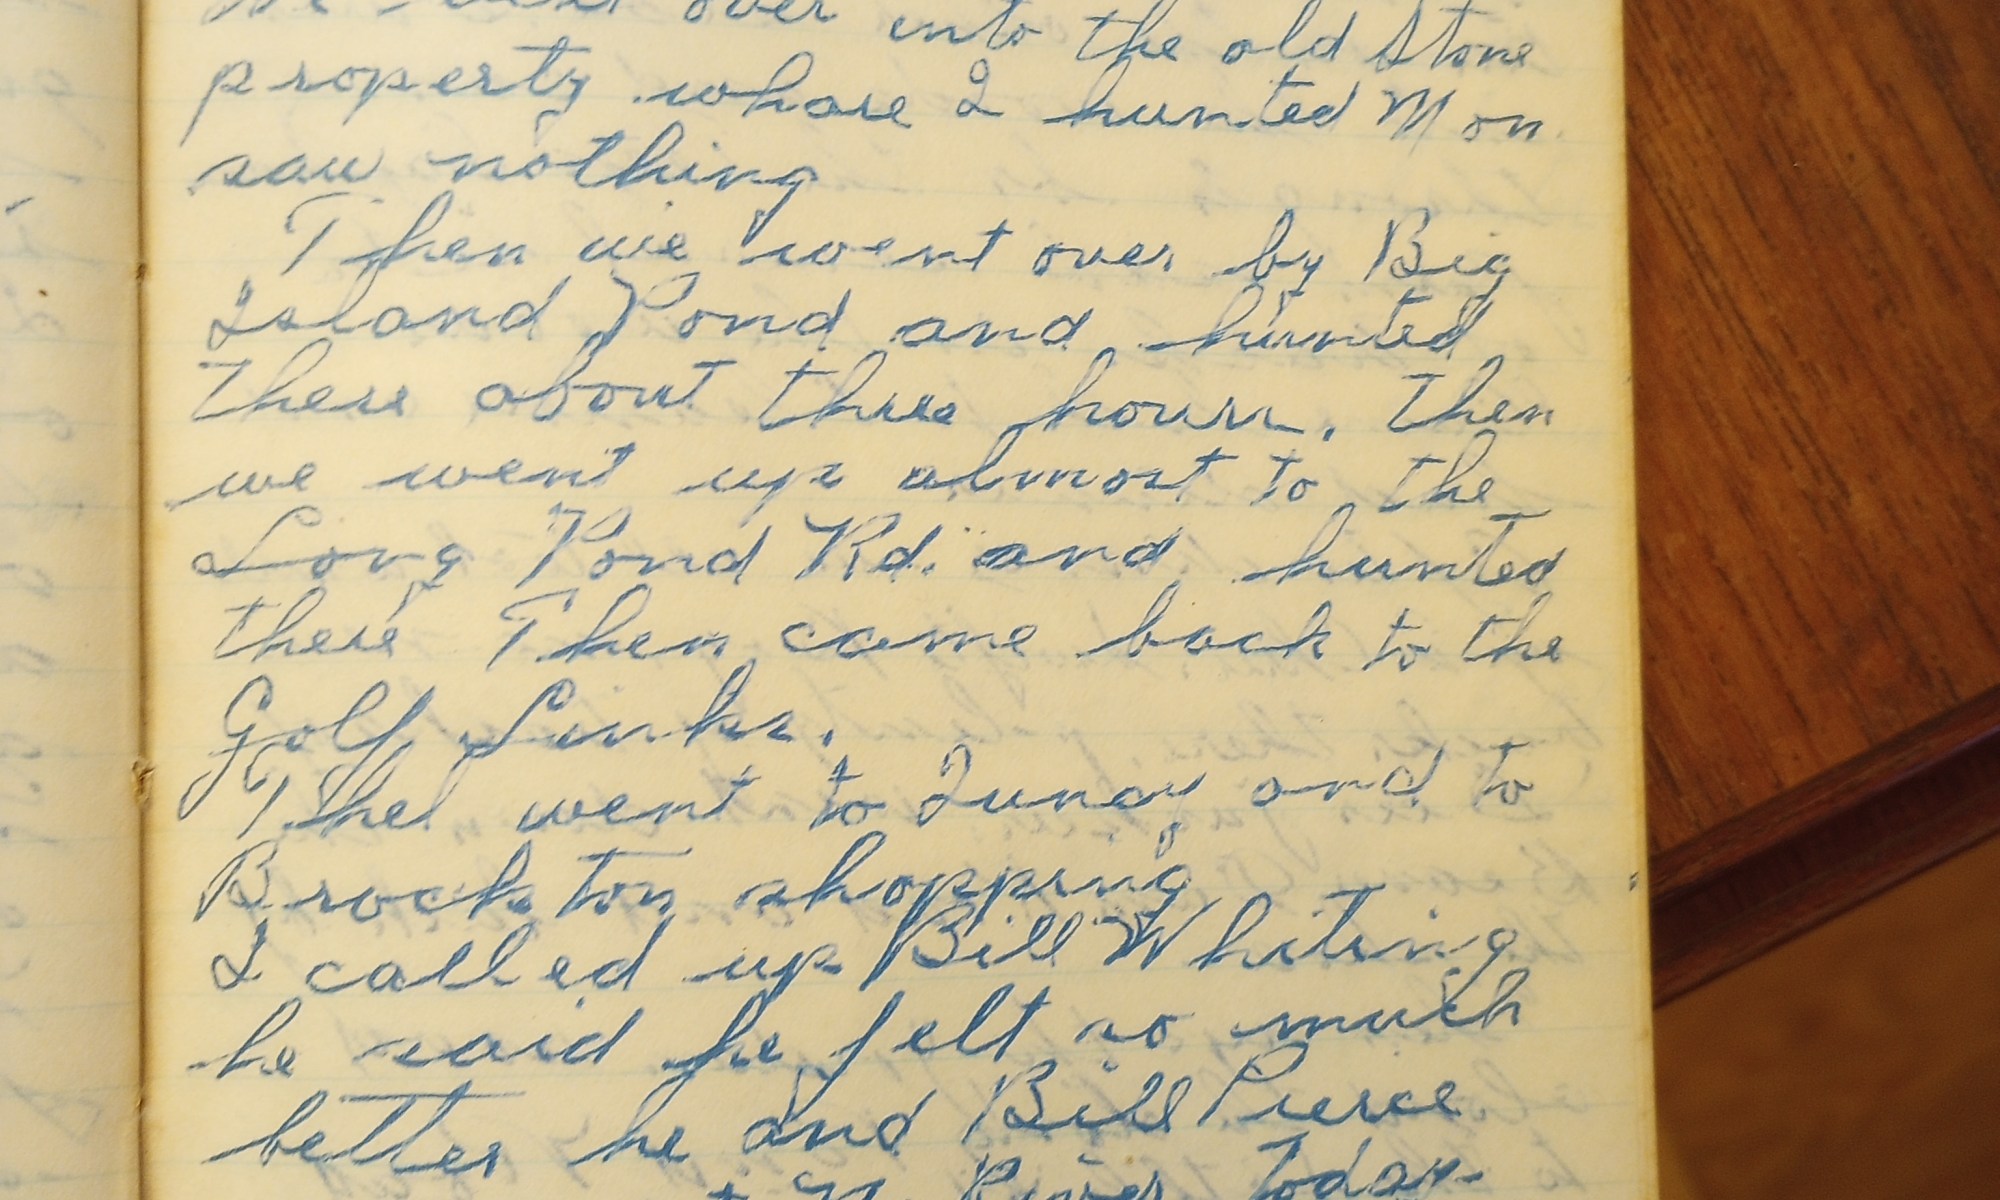 over into the old Stone
property whare I hunted Mon
saw nothing
Then we went over by Big
Island Pond and hunted
there about three hours. Then
we went up almost to the
Long Pond Rd. and hunted
there Then came back to the
Golf Links.
Thel went to Quncy and to
Brockton shopping
I called up Bill Whiting
he said he felt so much
better he and Bill Pierce
River today